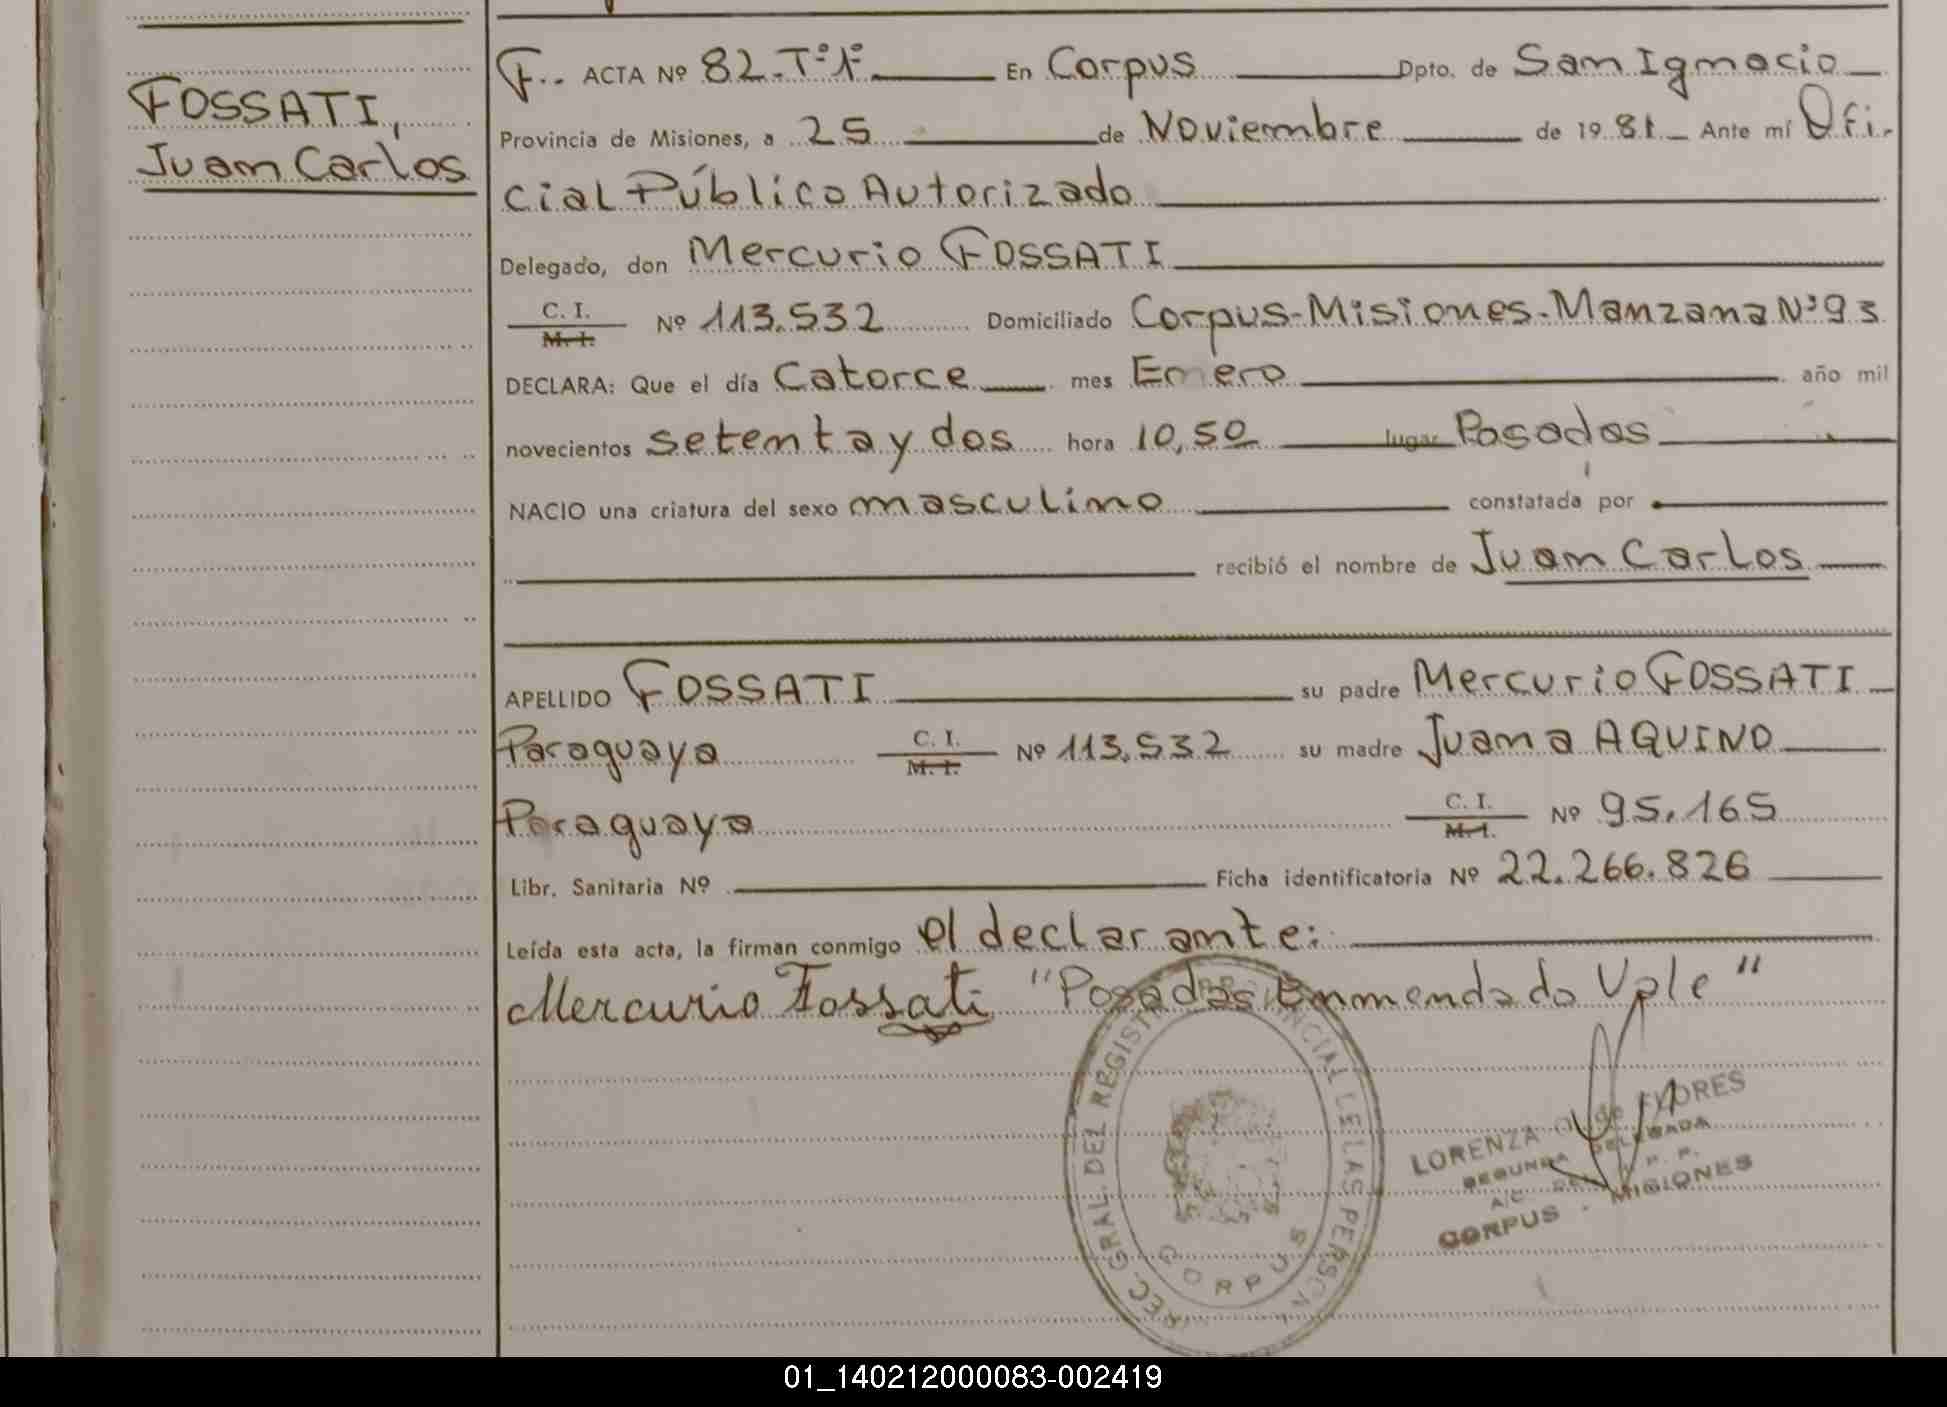 FOSSATI,
Juan Carlos
F.. ACTA Nº 82.Tº1º En Corpus Dpto. de San Ignacio
Provincia de Misiones, a 25 de Noviembre de 1981 Ante mí Ofi-
cial Público Autorizado
Delegado, don Mercurio FOSSATI
C. I.
M. I. Nº 113.532 Domiciliado Corpus-Misiones-Manzana Nº93
DECLARA: Que el día Catorce mes Enero año mil
novecientos setenta y dos hora 10,50 lugar Posadas
NACIO una criatura del sexo masculino constatada por
recibió el nombre de Juan Carlos
APELLIDO FOSSATI su padre Mercurio FOSSATI
Paraguaya C. I.
M. I. Nº 113.532 su madre Juana AQUINO
Paraguaya C. I.
M. I. Nº 95.165
Libr. Sanitaria Nº Ficha identificatoria Nº 22.266.826
Leída esta acta, la firman conmigo el declarante:
Mercurio Fossati "Posadas Enmendado Vale"
GRAL. DEL REGIST NCIAL DE LAS PERSON
CORPUS
LORENZA de FLORES
SEGUNDA DELEGADA
CORPUS - MISIONES
01_140212000083-002419